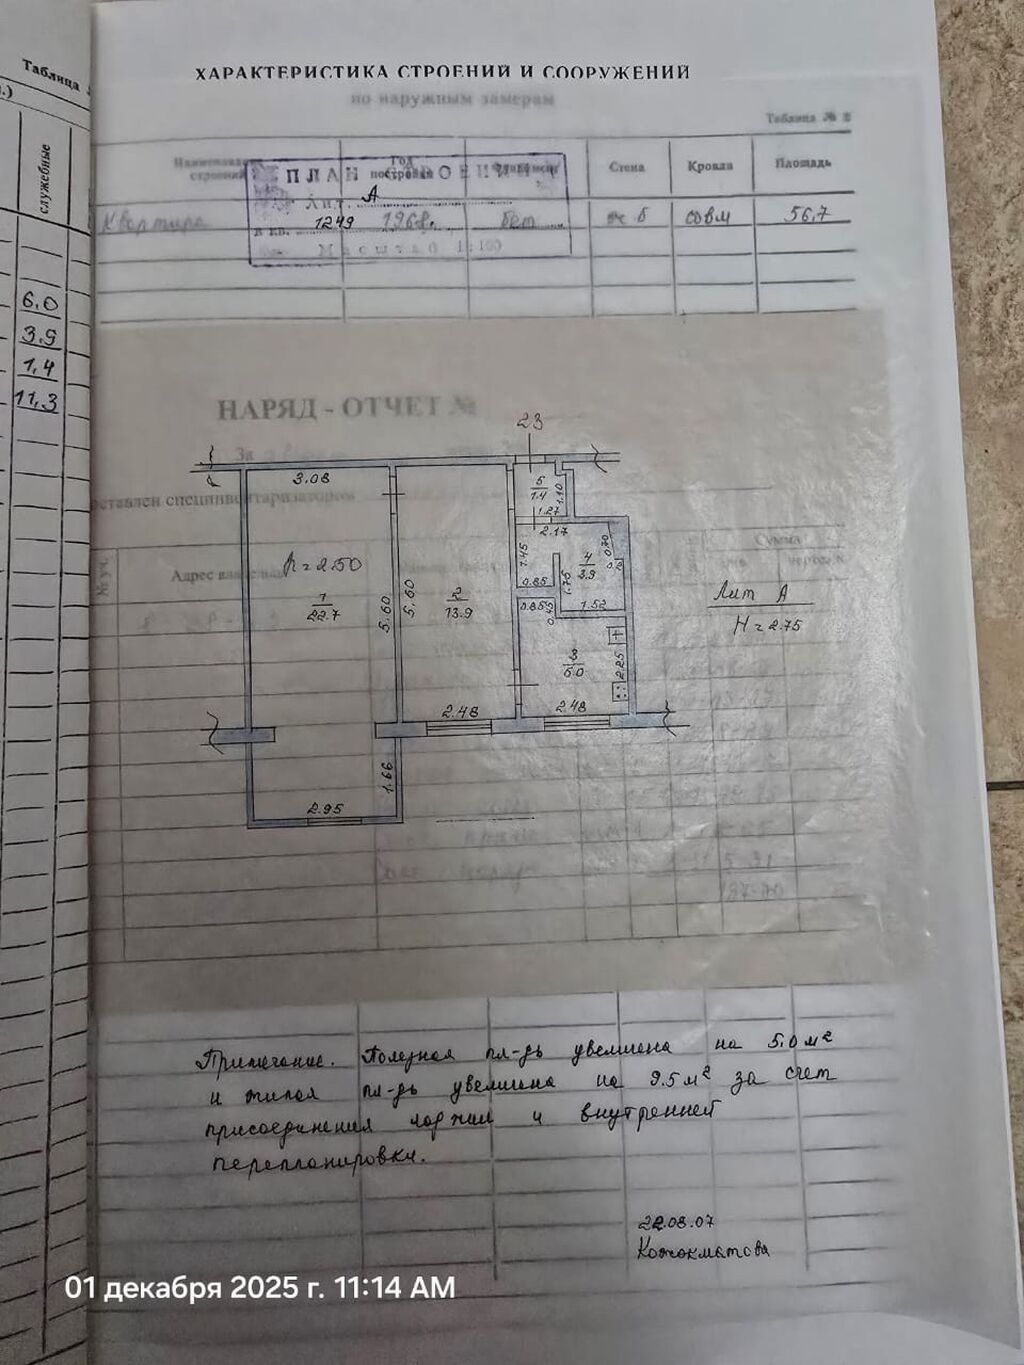 Таблица
служебные
6.0
3.9
1,4
11,3
ХАРАКТЕРИСТИКА СТРОЕНИЙ И СООРУЖЕНИЙ
по наружным замерам
Таблица № 2
Год постройки
Стена
Кровля
Площадь
ПЛАН СТРОЕНИЯ
Лит. А
в кв. 1249
Масштаб 1:100
Квартира
1968г.
бет
ж б
совм
56,7
НАРЯД - ОТЧЕТ №
За
23
3.08
5
1.4
1.10
1.27
составлен специнвентаризатором
2.17
Сумма
h=2.50
1.45
4
3.9
0.70
Адрес
1
22.7
5.60
5.60
2
13.9
0.85
1.75
1.52
0.85
0.45
Лит А
H=2.75
3
5.0
2.25
2.48
2.48
1.66
2.95
Примечание. Полезная пл-дь увеличена на 5.0 м²
и жилая пл-дь увеличена на 9.5 м² за счет
присоединения лоджии и внутренней
перепланировки.
22.08.07
Кожокматова
01 декабря 2025 г. 11:14 AM